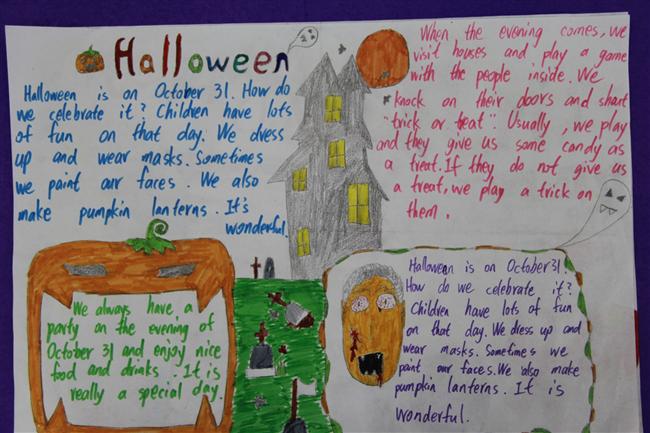 Halloween
Halloween is on October 31. How do
we celebrate it? Children have lots
of fun on that day. We dress
up and wear masks. Sometimes
we paint our faces. We also
make pumpkin lanterns. It's
wonderful.
When the evening comes, we
visit houses and play a game
with the people inside. We
knock on their doors and shout
"trick or treat". Usually, we play
and they give us some candy as
a treat. If they do not give us
a treat, we play a trick on
them.
We always have a
party on the evening of
October 31 and enjoy nice
food and drinks. It is
really a special day.
Halloween is on October 31.
How do we celebrate it?
Children have lots of fun
on that day. We dress up and
wear masks. Sometimes we
paint our faces. We also make
pumpkin lanterns. It is
wonderful.